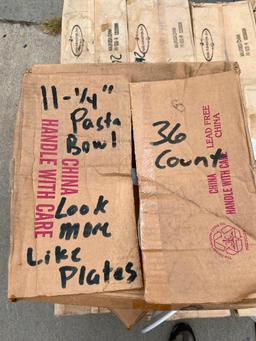 11-1/4"
Pasta
Bowl
Look
More
Like
Plates
CHINA
HANDLE WITH CARE
36
Count
LEAD FREE
CHINA
CHINA
HANDLE WITH CARE